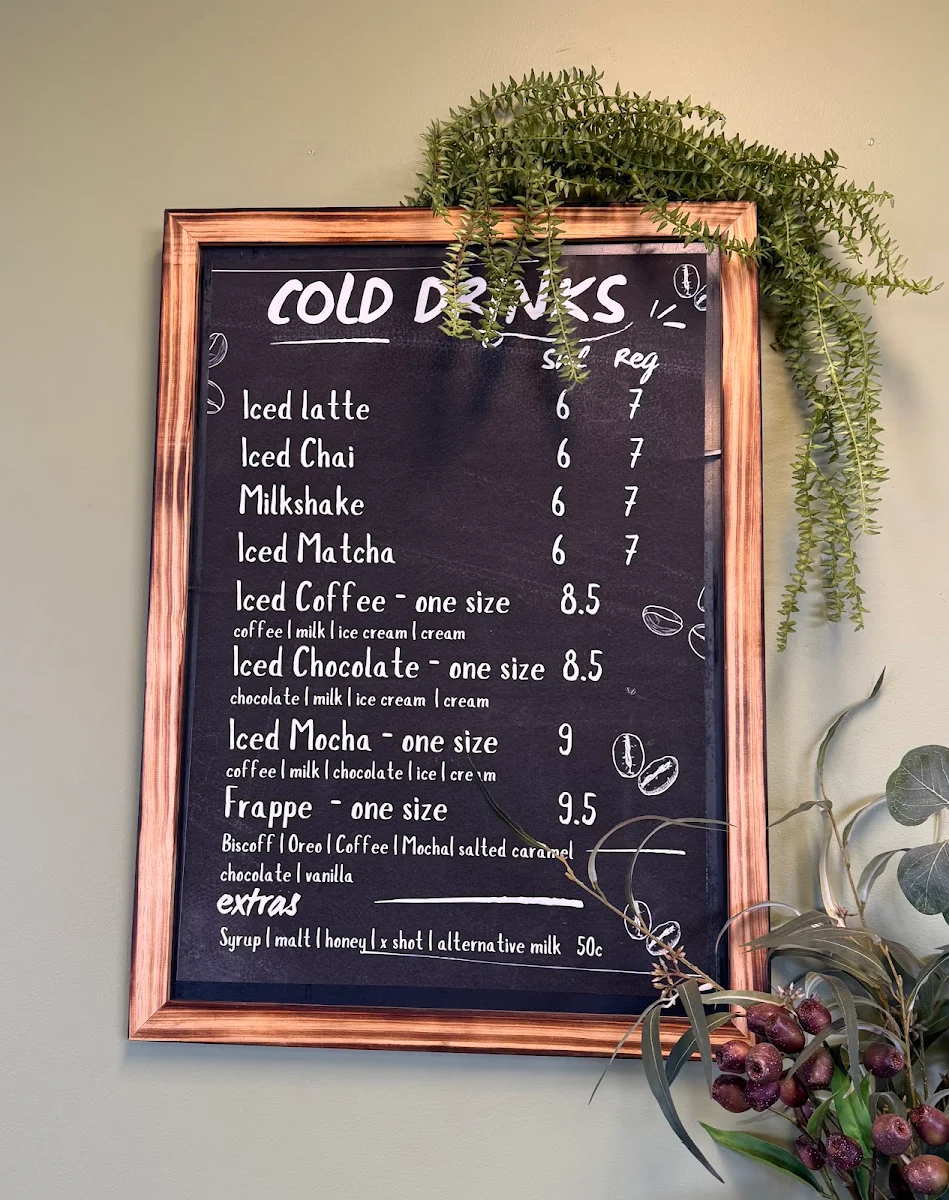 COLD DRINKS
Sml Reg
Iced latte 6 7
Iced Chai 6 7
Milkshake 6 7
Iced Matcha 6 7
Iced Coffee - one size 8.5
coffee | milk | ice cream | cream
Iced Chocolate - one size 8.5
chocolate | milk | ice cream | cream
Iced Mocha - one size 9
coffee | milk | chocolate | ice | cream
Frappe - one size 9.5
Biscoff | Oreo | Coffee | Mocha | salted caramel
chocolate | vanilla
extras
Syrup | malt | honey | x shot | alternative milk 50c